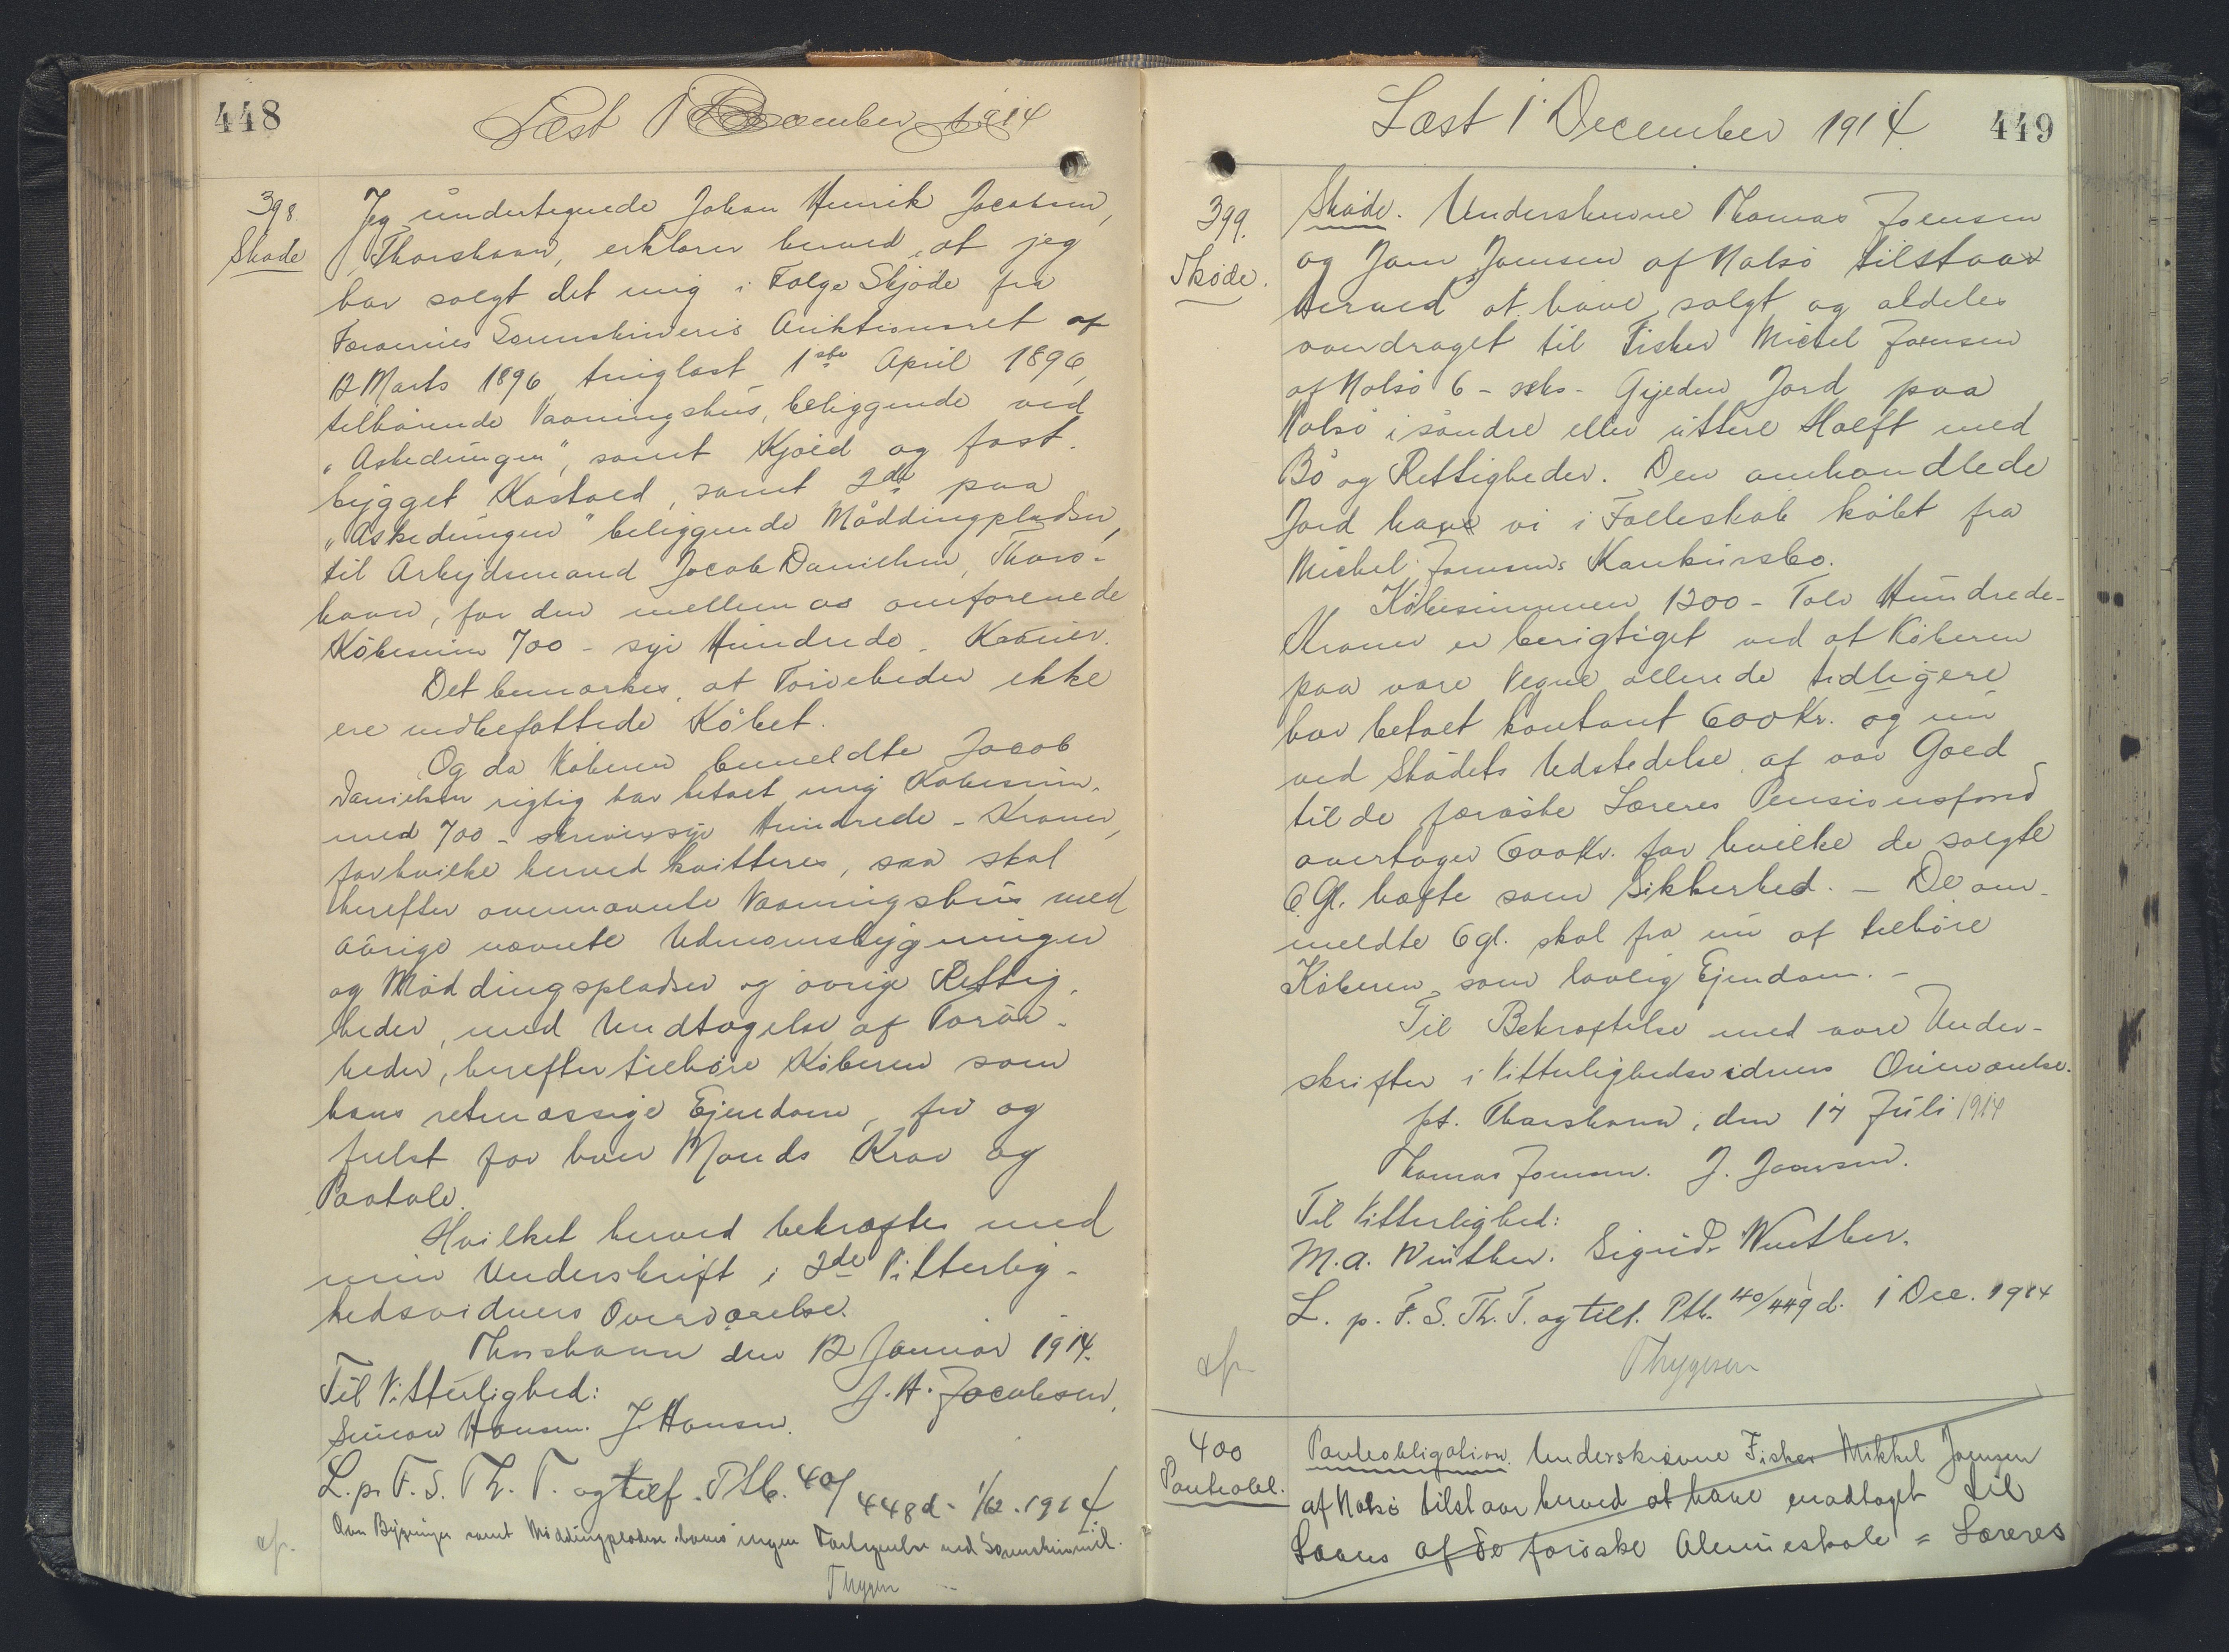 448
Læst 1 December 1914
398.
Skøde
Jeg undertegnede Johan Henrik Jacobsen,
Thorshavn, erklærer herved, at jeg
har solgt det mig i Følge Skjøde fra
Færøernes Sorenskriveris Auktionsret af
12 Marts 1896, tinglæst 1ste April 1896,
tilhørende Vaaningshus, beliggende ved
"Askedungen", samt Kjæld og fast-
bygget Kostald, samt 2de paa
"Askedungen" beliggende Møddingpladser,
til Arbejdsmand Jacob Danielsen, Thors-
havn, for den mellem os omforenede
Købesum 700 - syv Hundrede - Kroner.
Det bemærkes, at Tørvebeder ikke
ere indbefattede Købet.
Og da Køberen bemeldte Jacob
Danielsen rigtig har betalt mig Købesum.
med 700 - skriver syv Hundrede - Kroner,
for hvilke herved kvitteres, saa skal
herefter ovennævnte Vaaningshus med
øvrige nævnte Udenomsbygninger
og Møddingspladser og øvrige Rettig-
heder, med Undtagelse af Tørve-
beder, herefter tilhøre Køberen som
hans retmæssige Ejendom, fri og
frelst for hver Mands Krav og
Paatale.
Hvilket herved bekræftes med
min Underskrift i 2de Vitterlig-
hedsvidners Overværelse.
Thorshavn den 12 Januar 1914.
Til Vitterlighed:
J. H. Jacobsen.
Simon Hansen. J. Hansen.
L. p. F. S. Th. T. og tilf. Ptb. 40/448 d. 1/12 1914
Om Bygninger samt Møddingpladsen haves ingen
Thygesen
449
Læst 1 December 1914
399.
Skøde.
Skøde. Underskrevne Thomas Joensen
og Jens Joensen af Nolsø tilstaar
herved at have solgt og aldeles
overdraget til Fisker Michel Joensen
af Nolsø 6 - seks - Gyjeden Jord paa
Nolsø i søndre eller yttere Hælft med
Bø og Rettigheder. Den omhandlede
Jord have vi i Fælleskab købt fra
Michel Joensens Konkursbo.
Købesummen 1200 - Tolv Hundrede-
Kroner er berigtiget ved at Køberen
paa vore Vegne allerede tidligere
har betalt kontant 600 Kr. og nu
ved Skødets Udstedelse af vor Gæld
til de færøske Læreres Pensionsfond
overtager 600 Kr. for hvilke de solgte
6 Gl. hæfte som Sikkerhed. - De om-
meldte 6 gl. skal fra nu af tilhøre
Køberen som lovlig Ejendom. -
Til Bekræftelse med vore Under-
skrifter i Vitterlighedsvidners Overværelse.
pt. Thorshavn, den 17 Juli 1914
Thomas Joensen. J. Joensen.
Til Vitterlighed:
M. A. Winther. Sigrid Winther.
L. p. F. S. Th. T. og tilf. Ptb. 40/449 d. 1 Dec. 1914
Thygesen
400
Panteobl.
Panteobligation. Underskrevne Fisker Mikkel Joensen
af Nolsø tilstaar herved at have modtaget til
Laans af de færøske Almueskole = Læreres